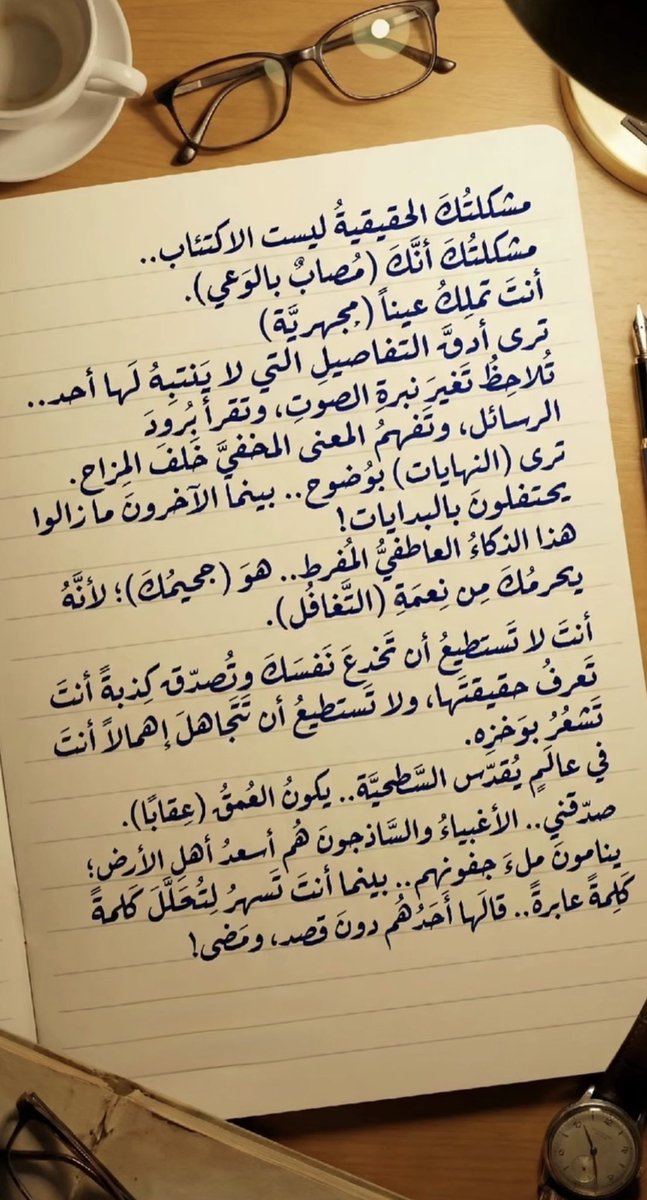 مشكلتُكَ الحقيقيةُ ليست الاكتئاب..
مشكلتُكَ أنَّكَ (مُصابٌ بالوَعي).
أنتَ تملِكُ عيناً (مِجهريَّة)
ترى أدقَّ التفاصيلِ التي لا يَنتبِهُ لَها أحد..
تُلاحِظُ تَغيرَ نبرةِ الصوتِ، وتقرأ بُرودَ
الرسائل، وتَفهمُ المعنى المخفيَّ خَلفَ المِزاح.
ترى (النهايات) بوُضوح.. بينما الآخرونَ ما زالوا
يحتفلونَ بالبدايات!
هذا الذكاءُ العاطفيُّ المُفرط.. هوَ (جحيمُكَ)؛ لأنَّهُ
يحرمُكَ مِن نِعمَةِ (التَّغافُل).
أنتَ لا تَستطيعُ أن تَخدعَ نَفسَكَ وتُصدّق كِذبةً أنتَ
تَعرفُ حقيقتَها، ولا تَستطيعُ أن تَتَجاهلَ إهمالاً أنتَ
تَشعُرُ بوَخزِه.
في عالَمٍ يُقدّس السَّطحيَّة.. يكونُ العُمقُ (عِقابًا).
صدّقني.. الأغبياءُ والسَّاذجونَ هُم أسعدُ أهلِ الأرض؛
ينامونَ ملءَ جفونهم.. بينما أنتَ تَسهرُ لِتُحَلَّلَ كَلمةً
كَلِمةً عابرةً.. قالَها أَحَدُهُم دونَ قصد، ومَضى!